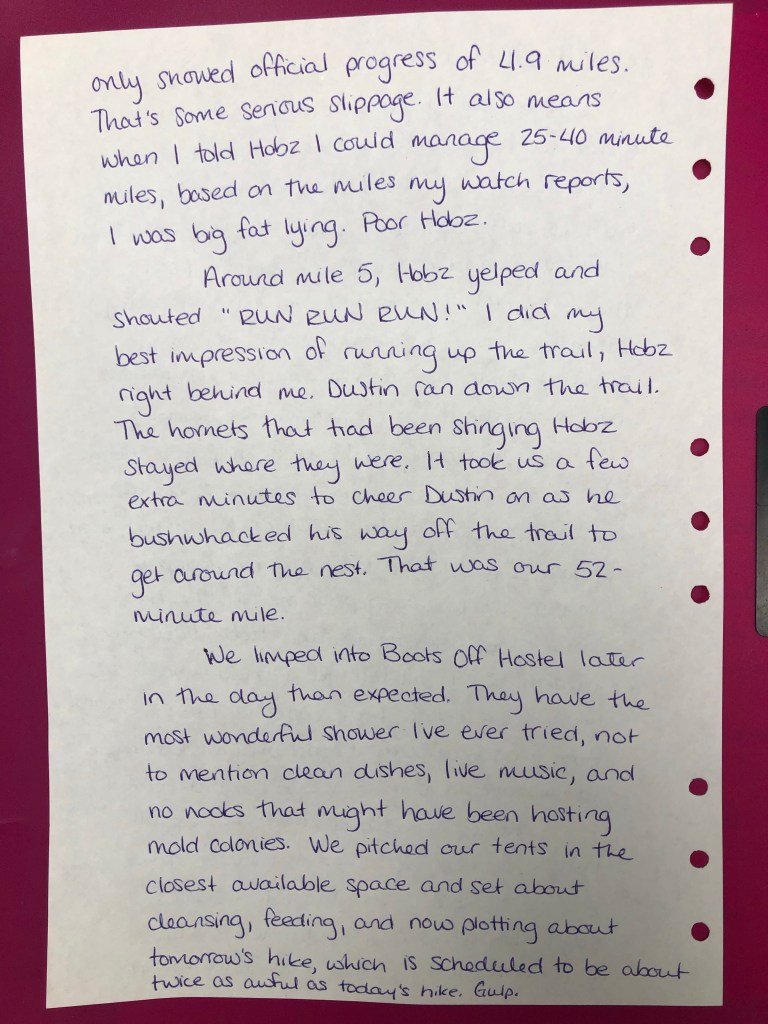 only showed official progress of 4.9 miles.
That's some serious slippage. It also means
when I told Hobz I could manage 25-40 minute
miles, based on the miles my watch reports,
I was big fat lying. Poor Hobz.
Around mile 5, Hobz yelped and
shouted "RUN RUN RUN!" I did my
best impression of running up the trail, Hobz
right behind me. Dustin ran down the trail.
The hornets that had been stinging Hobz
stayed where they were. It took us a few
extra minutes to cheer Dustin on as he
bushwhacked his way off the trail to
get around the nest. That was our 52-
minute mile.
We limped into Boots Off Hostel later
in the day than expected. They have the
most wonderful shower I've ever tried, not
to mention clean dishes, live music, and
no nooks that might have been hosting
mold colonies. We pitched our tents in the
closest available space and set about
cleansing, feeding, and now plotting about
tomorrow's hike, which is scheduled to be about
twice as awful as today's hike. Gulp.